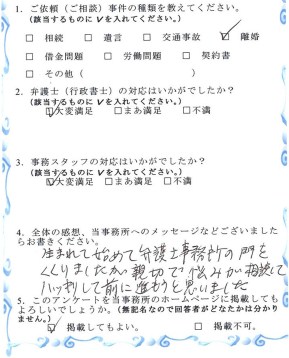 1. ご依頼（ご相談）事件の種類を教えてください。
（該当するものに✓を入れてください。）
□ 相続 □ 遺言 □ 交通事故 ☑ 離婚
□ 借金問題 □ 労働問題 □ 契約書
□ その他（ ）
2. 弁護士（行政書士）の対応はいかがでしたか？
（該当するものに✓を入れてください。）
☑大変満足 □まあ満足 □不満
3. 事務スタッフの対応はいかがでしたか？
（該当するものに✓を入れてください。）
☑大変満足 □まあ満足 □不満
4. 全体の感想、当事務所へのメッセージなどございました
らお書きください。
生まれて始めて弁護士事務所の門を
くぐりましたが親切で悩みが相談して
ハッキリして前に進もうと思いました
5. このアンケートを当事務所のホームページに掲載しても
よろしいでしょうか。（無記名なので回答者がどなたかは分かり
ません。）
☑ 掲載してもよい。 □ 掲載不可。